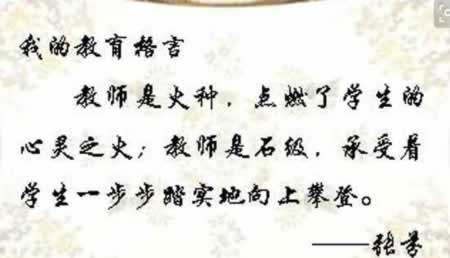 我的教育格言
教师是火种，点燃了学生的
心灵之火；教师是石级，承受着
学生一步步踏实地向上攀登。
——张芬